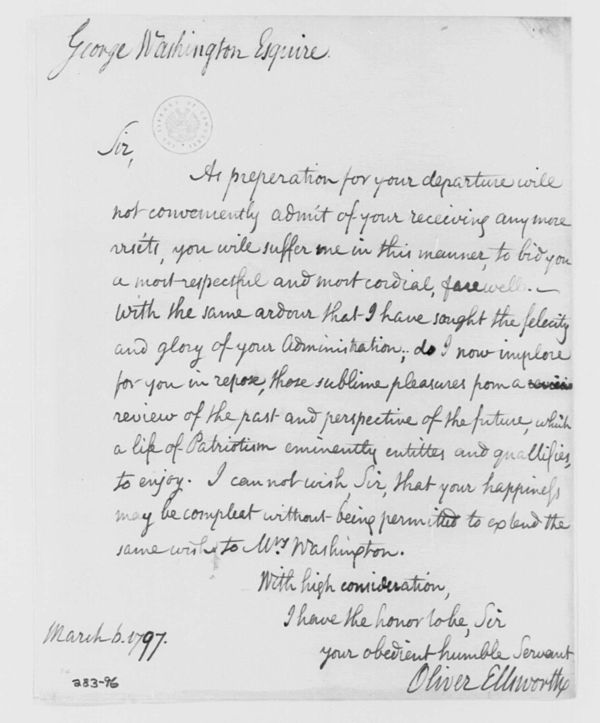 George Washington Esquire.
Sir,
As preparation for your departure will
not conveniently admit of your receiving any more
visits, you will suffer me in this manner, to bid you
a most respectful and most cordial, farewell. —
With the same ardour that I have sought the felicity
and glory of your Administration; do I now implore
for you in repose, those sublime pleasures from a
review of the past and perspective of the future, which
a life of Patriotism eminently entitles and quallifies,
to enjoy. I can not wish, Sir, that your happiness
may be compleat without being permitted to extend the
same wish to Mrs Washington.
With high consideration,
I have the honor to be, Sir
your obedient humble Servant
Oliver Ellsworth
March 6. 1797.
283-96